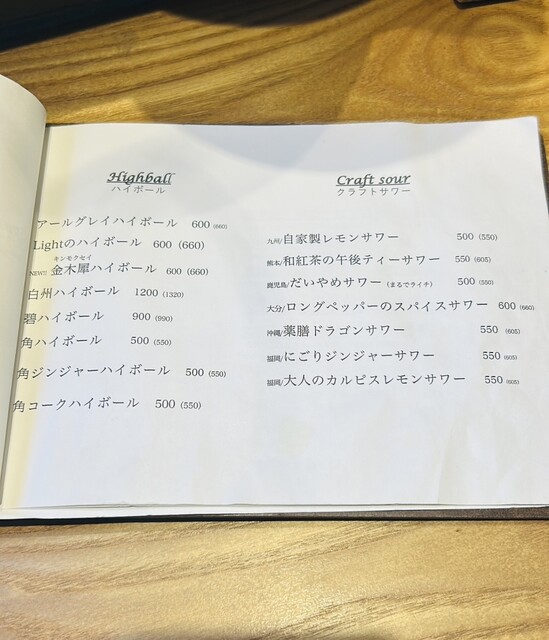 Highball
ハイボール
アールグレイハイボール 600 (660)
Lightのハイボール 600 (660)
キンモクセイ
NEW!! 金木犀ハイボール 600 (660)
白州ハイボール 1200 (1320)
碧ハイボール 900 (990)
角ハイボール 500 (550)
角ジンジャーハイボール 500 (550)
角コークハイボール 500 (550)
Craft sour
クラフトサワー
九州/自家製レモンサワー 500 (550)
熊本/和紅茶の午後ティーサワー 550 (605)
鹿児島/だいやめサワー (まるでライチ) 500 (550)
大分/ロングペッパーのスパイスサワー 600 (660)
沖縄/薬膳ドラゴンサワー 550 (605)
福岡/にごりジンジャーサワー 550 (605)
福岡/大人のカルピスレモンサワー 550 (605)